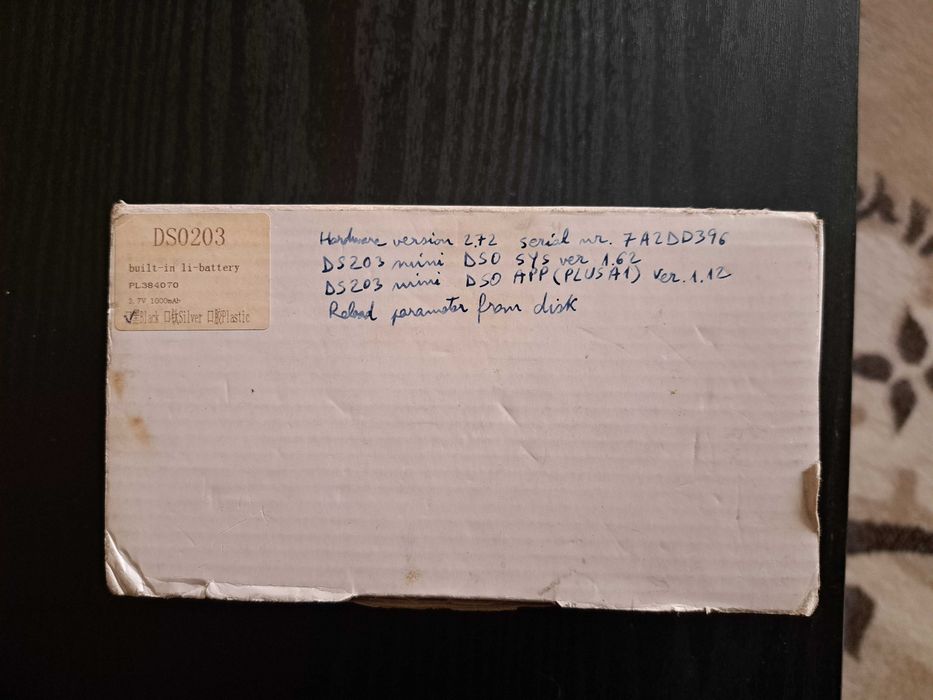 DSO203
built-in li-battery
PL384070
3.7V 1000mAh
Black Silver Plastic
Hardware version 2.72 serial nr. 7A2DD396
DS203 mini DSO SYS ver 1.62
DS203 mini DSO APP (PLUS A1) ver. 1.12
Reload parameter from disk